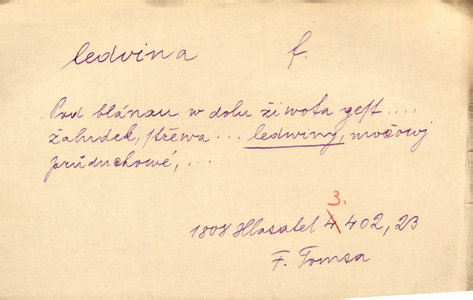 ledvina f.
Pod blánau w dolu žiwota gest ....
žaludek, střewa ... ledwiny, močowj
průduchowé, ...
3.
1808 Hlasatel 4 402, 23
F. Tomsa